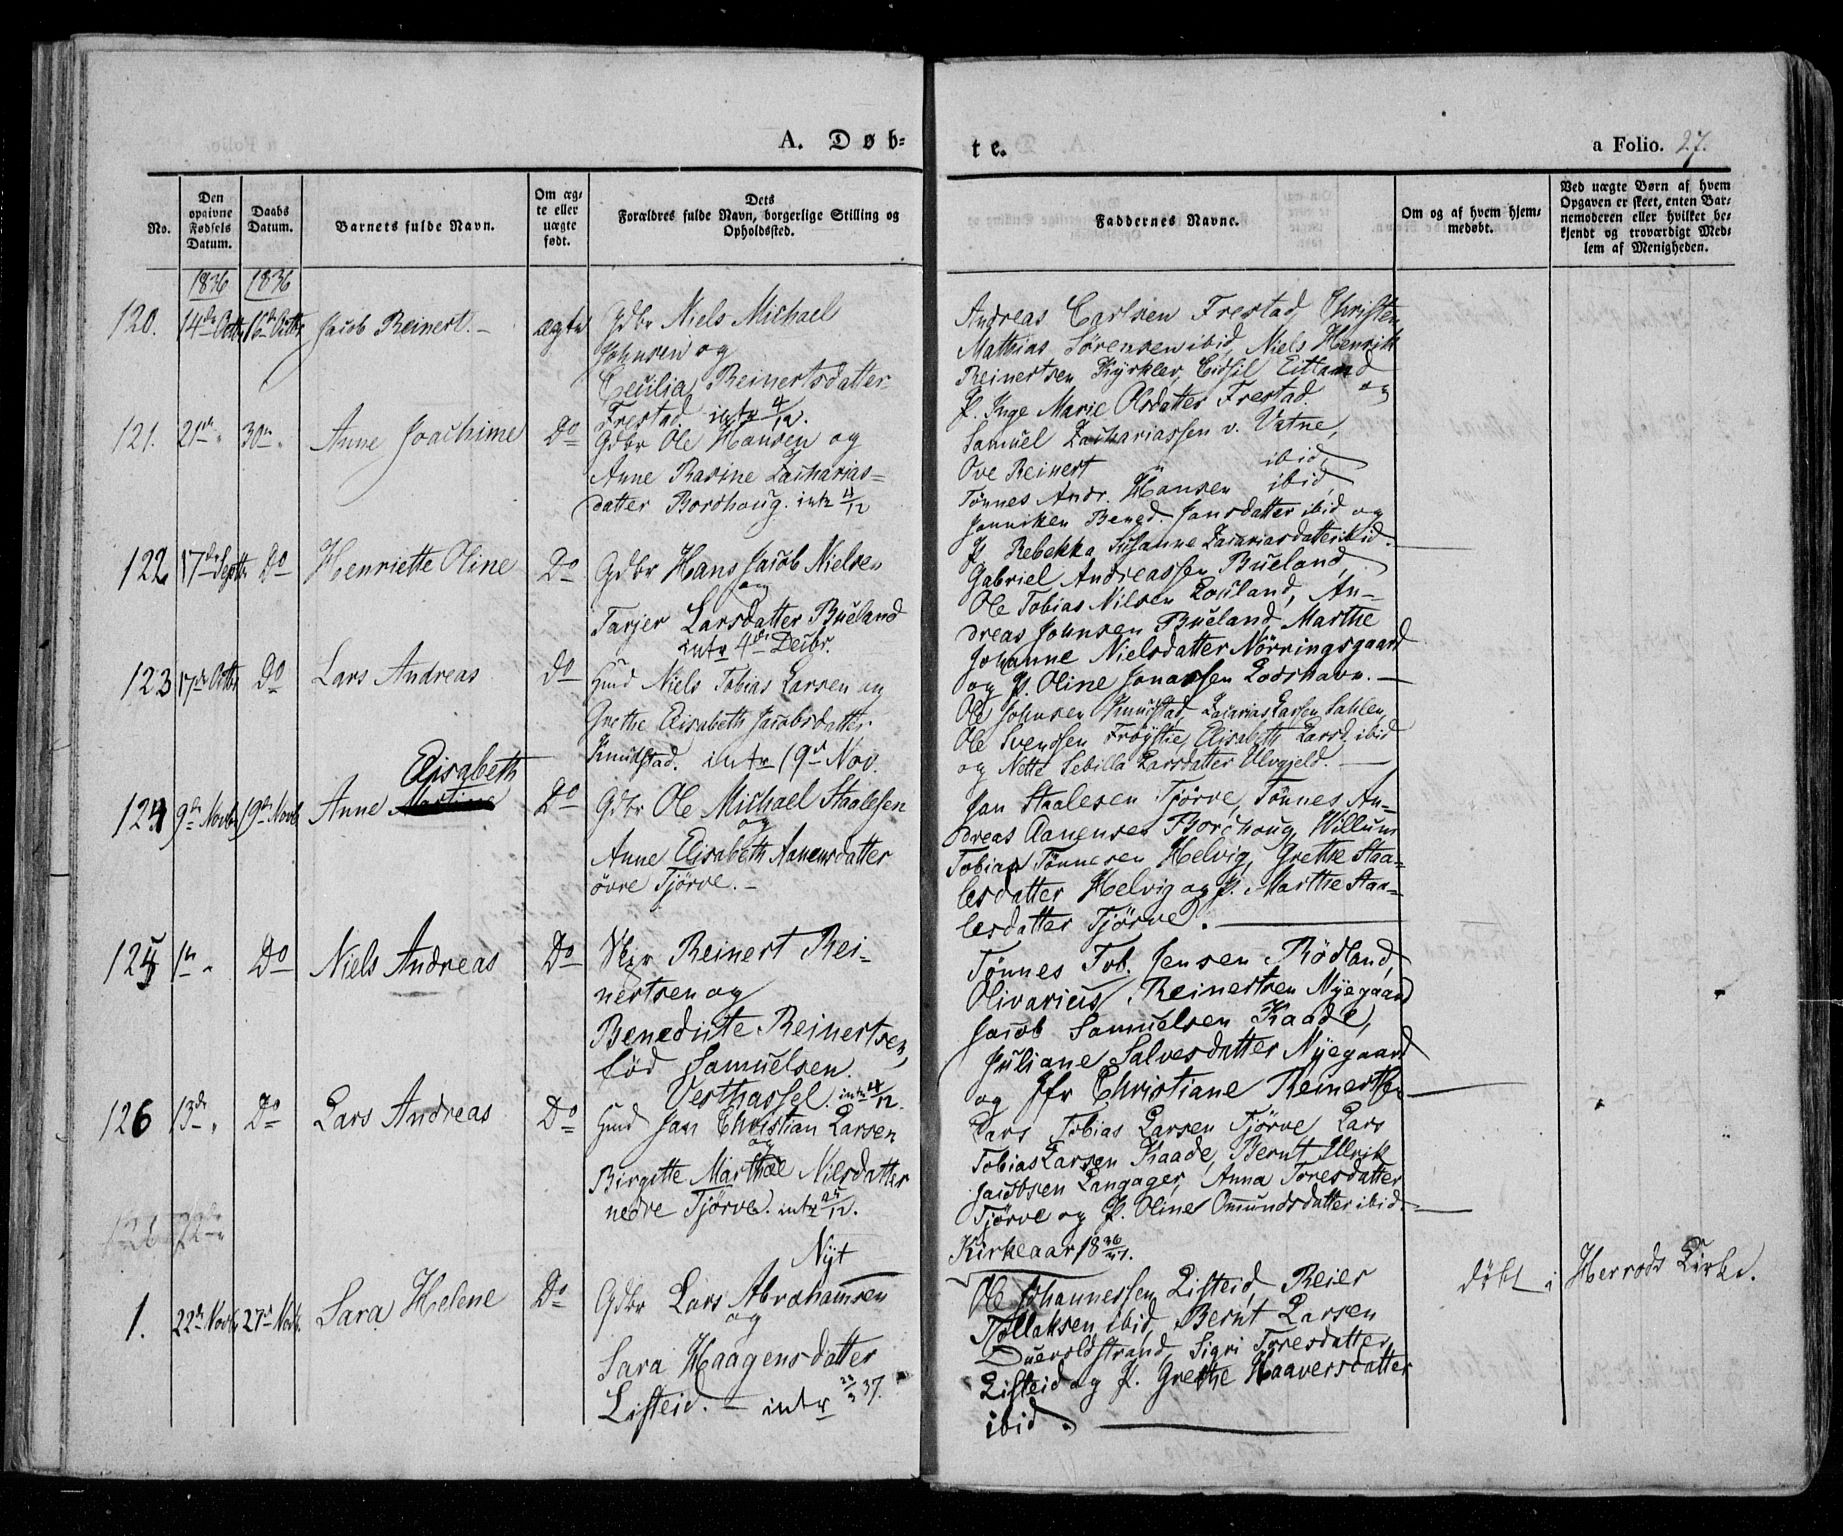 A. Døb-
te.
a Folio. 27.
No.
Den opgivne Fødsels Datum.
Daabs Datum.
Barnets fulde Navn.
Om ægte eller uægte født.
Dets Forældres fulde Navn, borgerlige Stilling og Opholdssted.
Faddernes Navne.
Om og af hvem hjemmedøbt.
Ved uægte Børn af hvem Opgaven er skeet, enten Barnemoderen eller hvilket bekjendt og troværdigt Medlem af Menigheden.
1836 1836
120. 14de Octbr 16de Octbr Jacob Reinert. - ægte Gdbr Niels Michael
Johnsen og
Cecilia Reinertsdatter
Frestad. intr 4/12.
Andreas Carlsen Frestad, Christen
Mathias Sörensen ibid, Niels Henrik
Reinertsen Kjrklev, Eidsil Eitland
og
P. Inge Marie Olsdatter Frestad.
121. 21de " 30te " Anne Joachime Do Gdbr Ole Hansen og
Anne Rasine Zacharias-
datter Bordhoug. intr 4/12
Samuel Zachariassen v. Vatne,
Ove Reinert ibid,
Tönnes Andr. Hansen ibid,
Janniken Bened. Jansdatter ibid og
P. Rebekka Susanne Zacariasdatter ibid.
122 17de Septbr Do Henriette Oline Do Gdbr Hans Jacob Nielsen
og
Tarjer Larsdatter Bueland
intr 4de Decbr.
Gabriel Andreassen Bueland,
Ole Tobias Nilsen Louland, An-
dreas Johnsen Bueland, Marthe
Johanne Nielsdatter Nörringsgaard
og P. Oline Jonassen Lodshavn. -
123 17de Octbr Do Lars Andreas Do Hmd Niels Tobias Larsen og
Grethe Elisabeth Jacobsdatter
Knudstad. intr 19de Nov.
Ole Johnsen Knudstad, Zacarias Larsen Sahlen,
Ole Svendsen Fröystie, Elisabeth Larsd. ibid
og Nette Sebilla Larsdatter Ulvgjeld. -
Elisabeth
124 9de Novbr 19de Novb Anne Martine Do Gdbr Ole Michael Staalesen
og
Anne Elisabeth Aanensdatter
övre Tjörve. -
Jan Staalesen Tjörve, Tönnes An-
dreas Aanensen Borchoug, Willum
Tobias Tönnesen Helvig, Grethe Staa-
lesdatter Helvig og P. Marthe Staa-
lesdatter Tjörve.
125 1te " Do Niels Andreas Do Skpr Reinert Rei-
nertsen og
Benedicte Reinertsen,
föd Samuelsen.
Vesthassel. intr 4/12.
Tönnes Tob. Jensen Rödland,
Olivarius Reinertsen Nyegaard
Jacob Samuelsen Kaade,
Juliane Salvesdatter Nyegaard
og Jfr Christiane Reinertsen
126 13de " Do Lars Andreas Do Hmd Jan Christian Larsen
og
Birgitte Marthae Nilsdatter
nedre Tjörve. intr 25/12.
Lars Tobias Larsen Tjörve, Lars
Tobias Larsen Kaade, Bernt Ulrik
Jacobsen Langager, Anna Toresdatter
Tjörve og P. Oline Omundsdatter ibid.
Nyt Kirkeaar 1836/37.
1. 22de Novbr 27de Novbr. Sara Helene Do Gdbr Lars Abrahamsen
og
Sara Haagensdatter
Listeid. - intr 23/3 37.
Ole Johannessen Listeid, Reier
Tollaksen ibid, Bernt Larsen
Duevoldstrand, Sigri Toresdatter
Listeid og P. Grethe Haaversdatter
ibid.
döbt i Herrods Kirke.